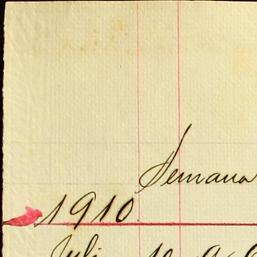 Semana
1910
Juli 10